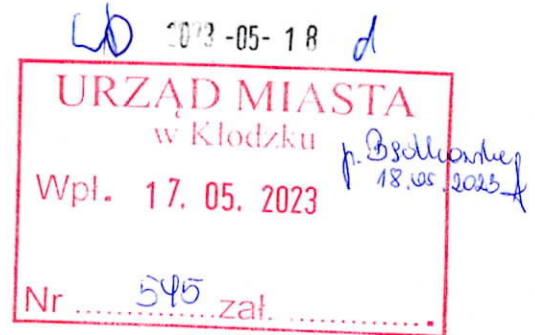 2023 -05- 18
URZĄD MIASTA
w Kłodzku
p.
18.05.2023
Wpł. 17. 05. 2023
Nr ........ 545 .. zał. ..............